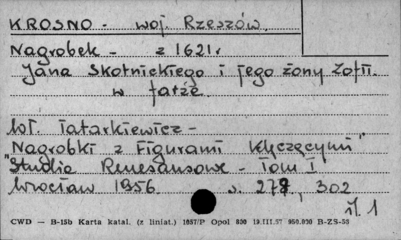 KROSNO - woj. Rzeszów.
Nagrobek - z 1621 r
Jana Skotnickiego i jego żony Zofii.
w farze
Wł. Tatarkiewicz -
Nagrobki z Figurami klęczącymi"
"Studia Renesansowe - Tom I
Wrocław 1956. s. 278, 302
il. 1
CWD — B-15b Karta katal. (z liniat.) 1687/P Opol 800 19.III.57 950.000 B-ZS-58